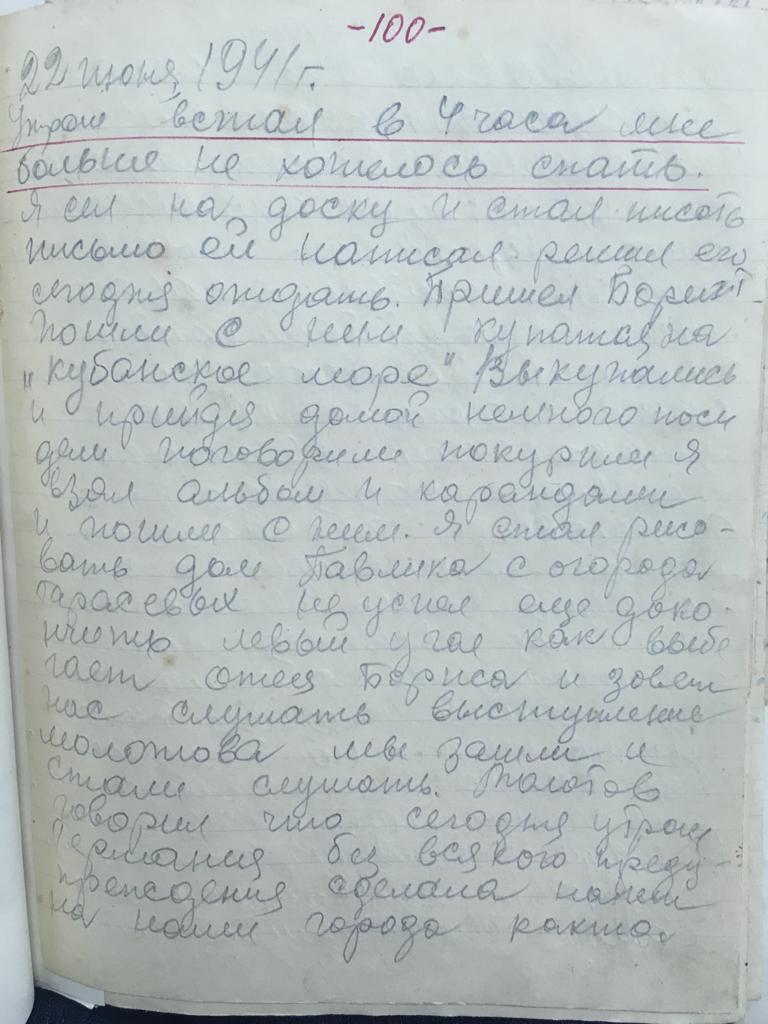 -100-
22 июня 1941 г.
Утром встал в 4 часа мне
больше не хотелось спать.
Я сел на доску и стал писать
письмо ей написал решил его
сегодня отдать. Пришел Борис Т-
пошли с ним купатся на
"Кубанское море" Выкупались
и прийдя домой немного поси
дели поговорили покурили я
взял альбом и карандаши
и пошли с ним. Я стал рисо-
вать дом Павлика с огорода
Тарасевых не успел еще доко-
нчить левый угол как выбе
гает отец Бориса и зовет
нас слушать выступление
молотова мы зашли и
стали слушать. Молотов
говорил что сегодня утром
Германия без всякого преду-
преждения сделала налет
на наши города както.